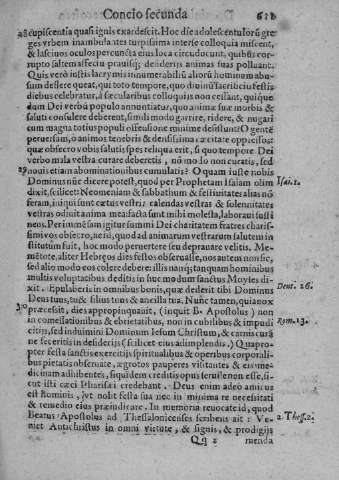 Concio secunda 611
cupiscentia quasi ignis exardescit. Hoc die adolescentulorū gre
ges vrbem inambulantes turpissima inter se colloquia miscent,
& lasciuos oculos per cuncta eius loca circūducunt, quibus cor-
rupto saltem affectu prauisq; desiderijs animas suas polluant.
Quis verò iustis lacrymis innumerabiliū aliorū hominum abu-
sum deflere queat, qui toto tempore, quo diuinū sacrificiū festis
diebus celebratur, à sæcularibus colloquijs non cessant, quique
dum Dei verbū populo annuntiatur, quo animæ suæ morbis &
saluti consulere deberent, simili modo garrire, ridere, & nugari
cum magna totius populi offensione minime desistunt? O gentē
peruersam, ò animos tenebris & densissima cæcitate oppressos:
quæ obsecro vobis salutis spes reliqua erit, si quo tempore Dei
verbo mala vestra curare deberetis, nō modo non curatis, sed
29 nouis etiam abominationibus cumulatis? O quam iuste nobis
Dominus nūc dicere potest, quod per Prophetam Isaiam olim Isai. 1.
dixit, scilicet: Neomeniam & sabbathum & festiuitates alias nō
feram, iniqui sunt cœtus vestri: calendas vestras & solennitates
vestras odiuit anima mea: facta sunt mihi molesta, laboraui susti
nens. Per immēsam igitur summi Dei charitatem fratres charis-
simi vos obsecro, ne id, quod ad animarum vestrarum salutem in
stitutum fuit, hoc modo peruertere seu deprauare velitis. Me-
mētote, aliter Hebræos dies festos obseruasse, nos autem non sic,
sed alio modo eos colere debere: illis namq; tanquam hominibus
multis voluptatibus deditis in hunc modum sanctus Moyses di-
xit. Epulaberis in omnibus bonis, quæ dederit tibi Dominus Deut. 26.
Deus tuus, tu & filius tuus & ancilla tua. Nunc tamen, quia nox
30 præcessit, dies appropinquauit, (inquit B. Apostolus) non
in comessationibus & ebrietatibus, non in cubilibus & impudi Rom. 13.
citijs, sed induimini Dominum Iesum Christum, & carnis cura
ne feceritis in desiderijs (scilicet eius adimplendis.) Quapro-
pter festa sanctis exercitijs spiritualibus & operibus corporali-
bus pietatis obseruate, ægrotos pauperes visitantes & eis me-
dicinam adhibentes, siquidem creditis opus seruile non esse, si-
cut isti cæci Pharisæi credebant. Deus enim adeo amicus
est hominis, vt nolit festa sua nec in minima re necessitati
& remedio eius præiudicare. In memoria reuocate id, quod
Beatus Apostolus ad Thessalonicenses scribens ait: Ve- 2. Thess. 2.
niet Antichristus in omni virtute, & signis, & prodigijs
Qq 2 menda